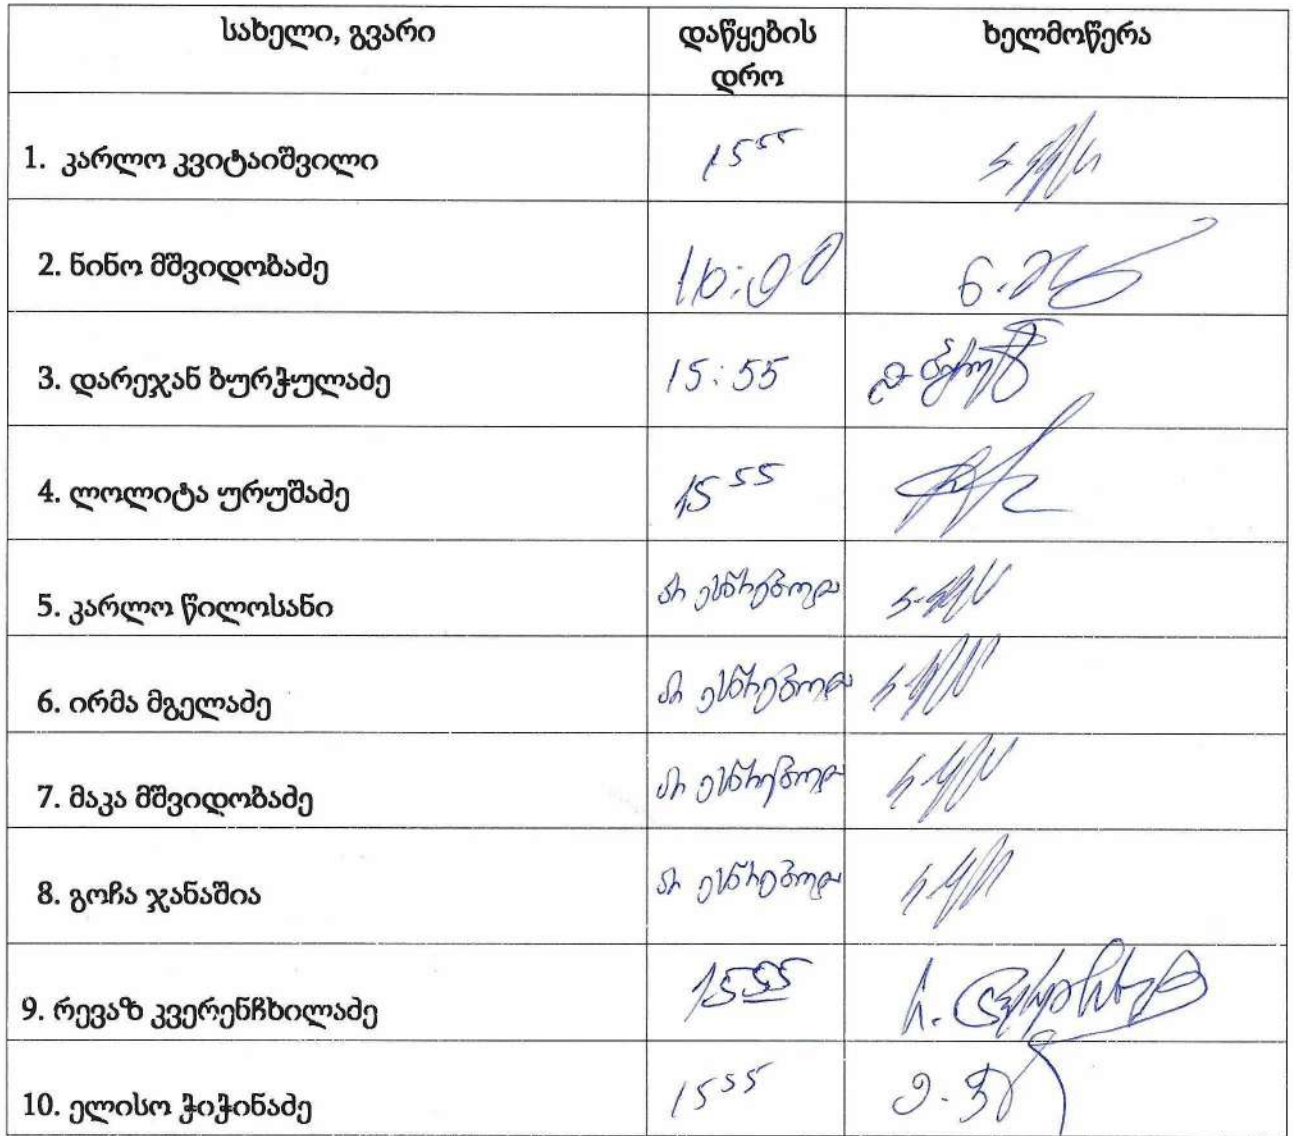 სახელი, გვარი დაწყების დრო ხელმოწერა
1. კარლო კვიტაიშვილი 15⁵⁵
2. ნინო მშვიდობაძე 16:00
3. დარეჯან ბურჭულაძე 15:55
4. ლოლიტა ურუშაძე 15⁵⁵
5. კარლო წილოსანი არ ესწრებოდა
6. ირმა მგელაძე არ ესწრებოდა
7. მაკა მშვიდობაძე არ ესწრებოდა
8. გოჩა ჯანაშია არ ესწრებოდა
9. რევაზ კვერენჩხილაძე 15⁵⁵
10. ელისო ჭიჭინაძე 15⁵⁵